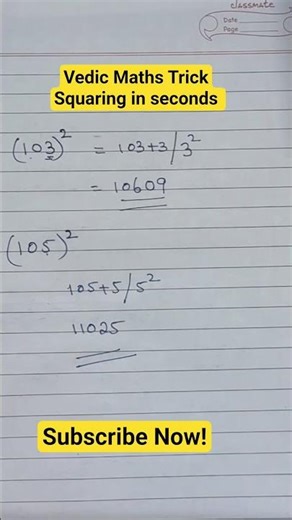 classmate
Date
Page
Vedic Maths Trick
Squaring in seconds
(103)² = 103+3/3²
= 10609
(105)²
105+5/5²
11025
Subscribe Now!